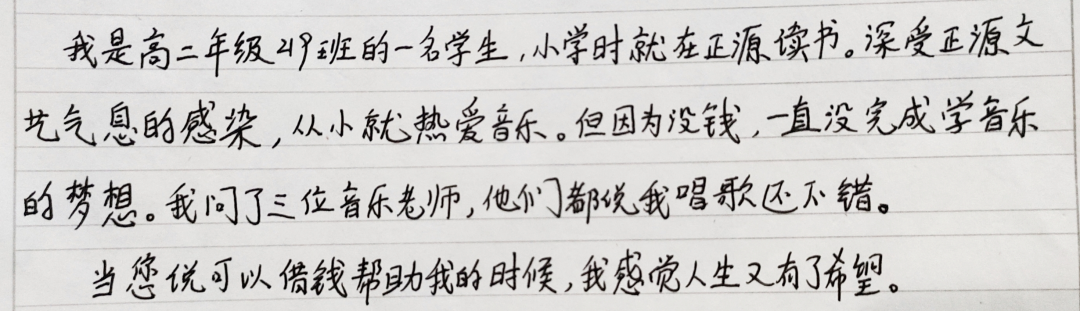 我是高二年级219班的一名学生,小学时就在正源读书。深受正源文
艺气息的感染,从小就热爱音乐。但因为没钱,一直没完成学音乐
的梦想。我问了三位音乐老师,他们都说我唱歌还不错。
当您说可以借钱帮助我的时候,我感觉人生又有了希望。